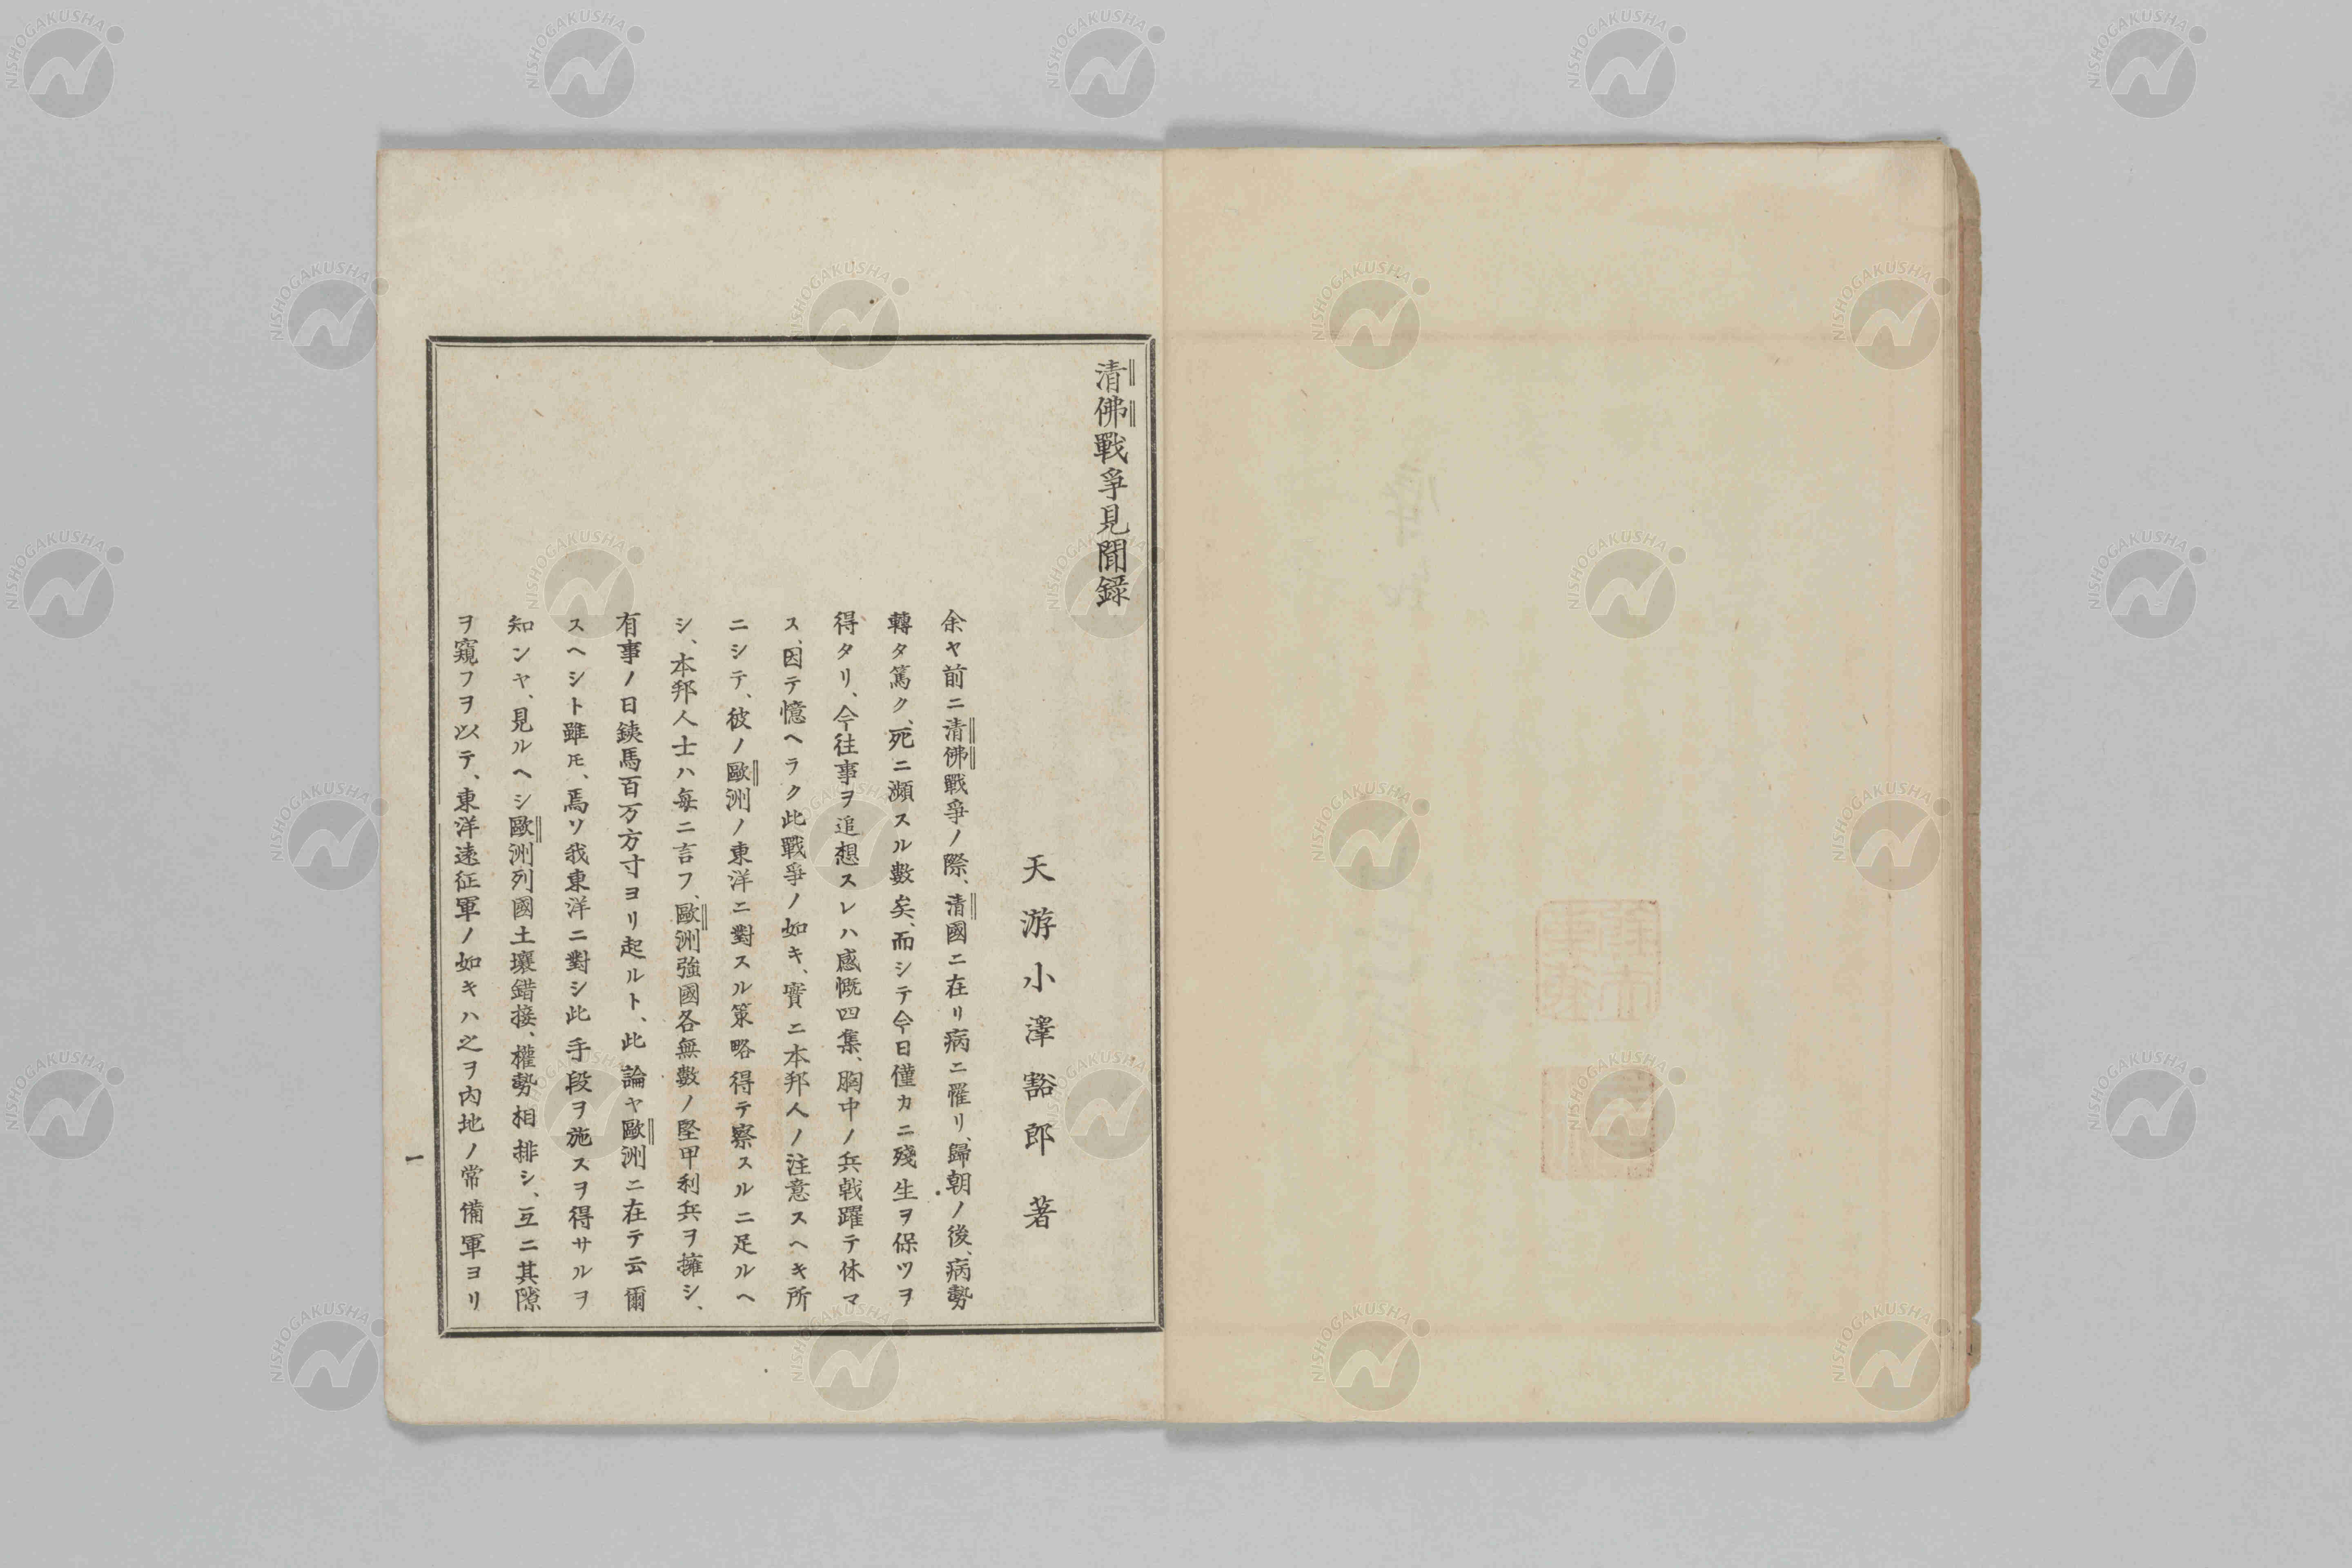 清佛戰爭見聞錄
天游小澤豁郎 著
余ヤ前ニ清佛戰爭ノ際、清國ニ在リ病ニ罹リ、歸朝ノ後、病勢
轉タ篤ク、死ニ瀕スル數矣、而シテ今日僅カニ殘生ヲ保ツヲ
得タリ、今往事ヲ追想スレハ感慨四集、胸中ノ兵戟躍テ休マ
ス、因テ憶ヘラク此戰爭ノ如キ、實ニ本邦人ノ注意スヘキ所
ニシテ、彼ノ歐洲ノ東洋ニ對スル策略得テ察スルニ足ルヘ
シ、本邦人士ハ每ニ言フ、歐洲強國各無數ノ堅甲利兵ヲ擁シ、
有事ノ日鐵馬百万方寸ヨリ起ルト、此論ヤ歐洲ニ在テ云爾
スヘシト雖モ、焉ソ我東洋ニ對シ此手段ヲ施スヲ得サルヲ
知ンヤ、見ルヘシ歐洲列國土壤錯接、權勢相排シ、互ニ其隙
ヲ窺フヲ以テ、東洋遠征軍ノ如キハ之ヲ內地ノ常備軍ヨリ
一
NISHOGAKUSHA